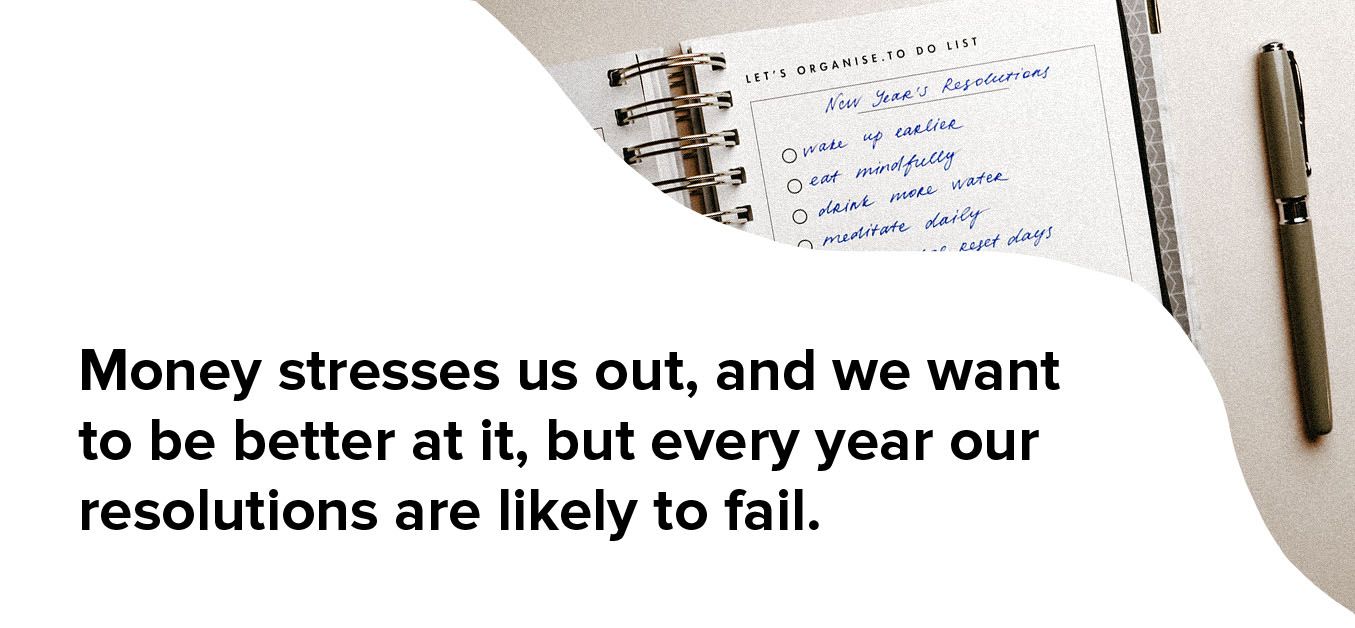 LET'S ORGANISE.TO DO LIST
New Year's Resolutions
wake up earlier
eat mindfully
drink more water
meditate daily
reset days
Money stresses us out, and we want
to be better at it, but every year our
resolutions are likely to fail.